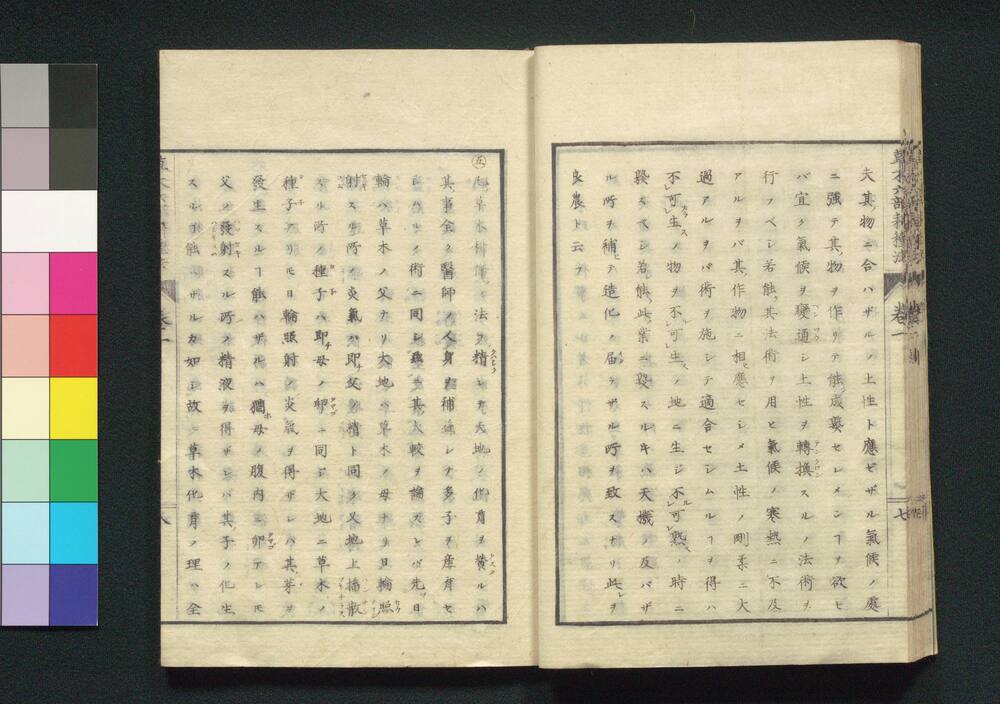 夫其物ニ合ハザルノ土性ト應ゼザル氣候ノ處
ニ強テ其物ヲ作リテ能成熟セシメンヿヲ欲セ
バ宜ク氣候ヲ變通シ土性ヲ轉換スルノ法術ヲ
行フベシ若能其法術ヲ用ヒ氣候ノ寒熱ニ不及
アルヲバ其作物ニ相應セシメ土性ノ剛柔ニ大
過アルヲバ術ヲ施シテ適合セシムルヿヲ得ハ
不可生ノ物ヲ不可生ノ地ニ生ジ不可熟ノ時ニ
熟スベシ若能此業ニ熟スルキハ天機ノ及バザ
ル所ヲ補ヒ造化ノ届カザル所ヲ致スナリ此ヲ
良農ト云フ
草木六部耕種法
卷一
七
五
草木
法ヲ精シクシテ天地ノ化育ヲ贊ルハ
其事全ク醫師ノ人身ヲ補 シテ多子ヲ產育セ
ムルノ術ニ同シ 其大較ヲ論ズレバ先日
輪ハ草木ノ父ナリ大地ハ草木ノ母ナリ日輪照
射スル所ノ炎氣ハ卽父ノ精ト同ク又地上播散
スル所ノ種子ハ卽母ノ卵ニ同ジ大地ニ草木ノ
種子アリモ日輪照射ノ炎氣ヲ得ザレバ其芽ヲ
發生スルヿ能ハザルハ猶母ノ腹内ニ卵アレモ
父ノ發射スル所ノ精液ヲ得ザレバ其子ノ化生
スルヿ能ハザルカ如シ故ニ草木化育ノ理ハ全
卷一
八